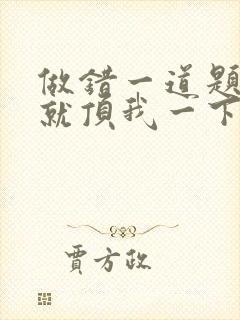 做错一道题
就頂我一下
賈方政